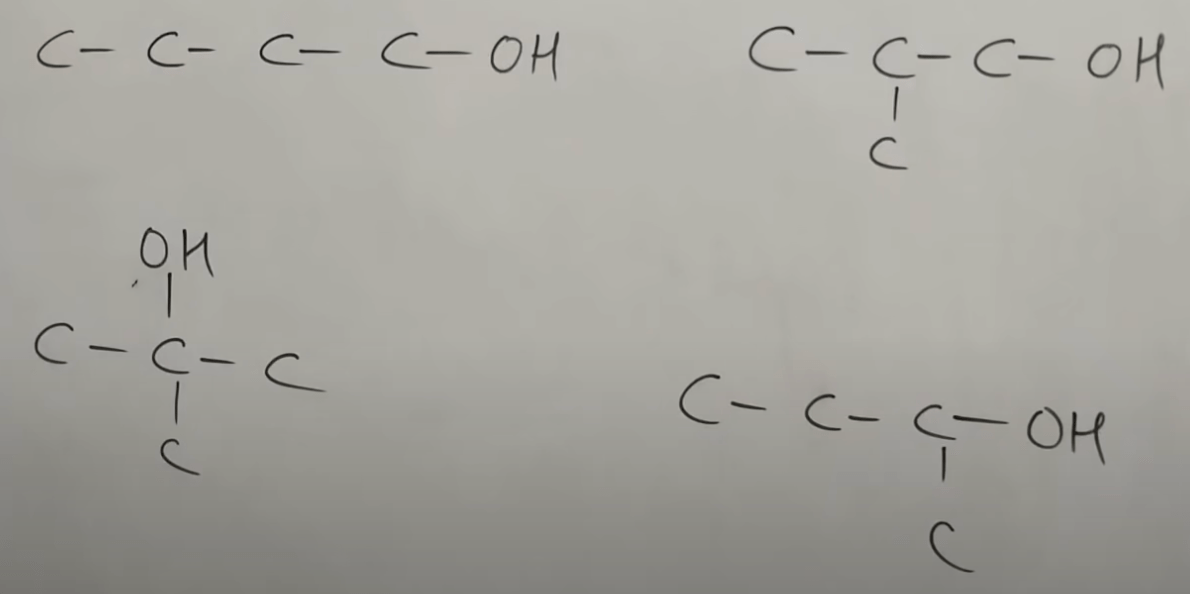 C - C - C - C - OH
C - C - C - OH
|
C
OH
|
C - C - C
|
C
C - C - C - OH
|
C